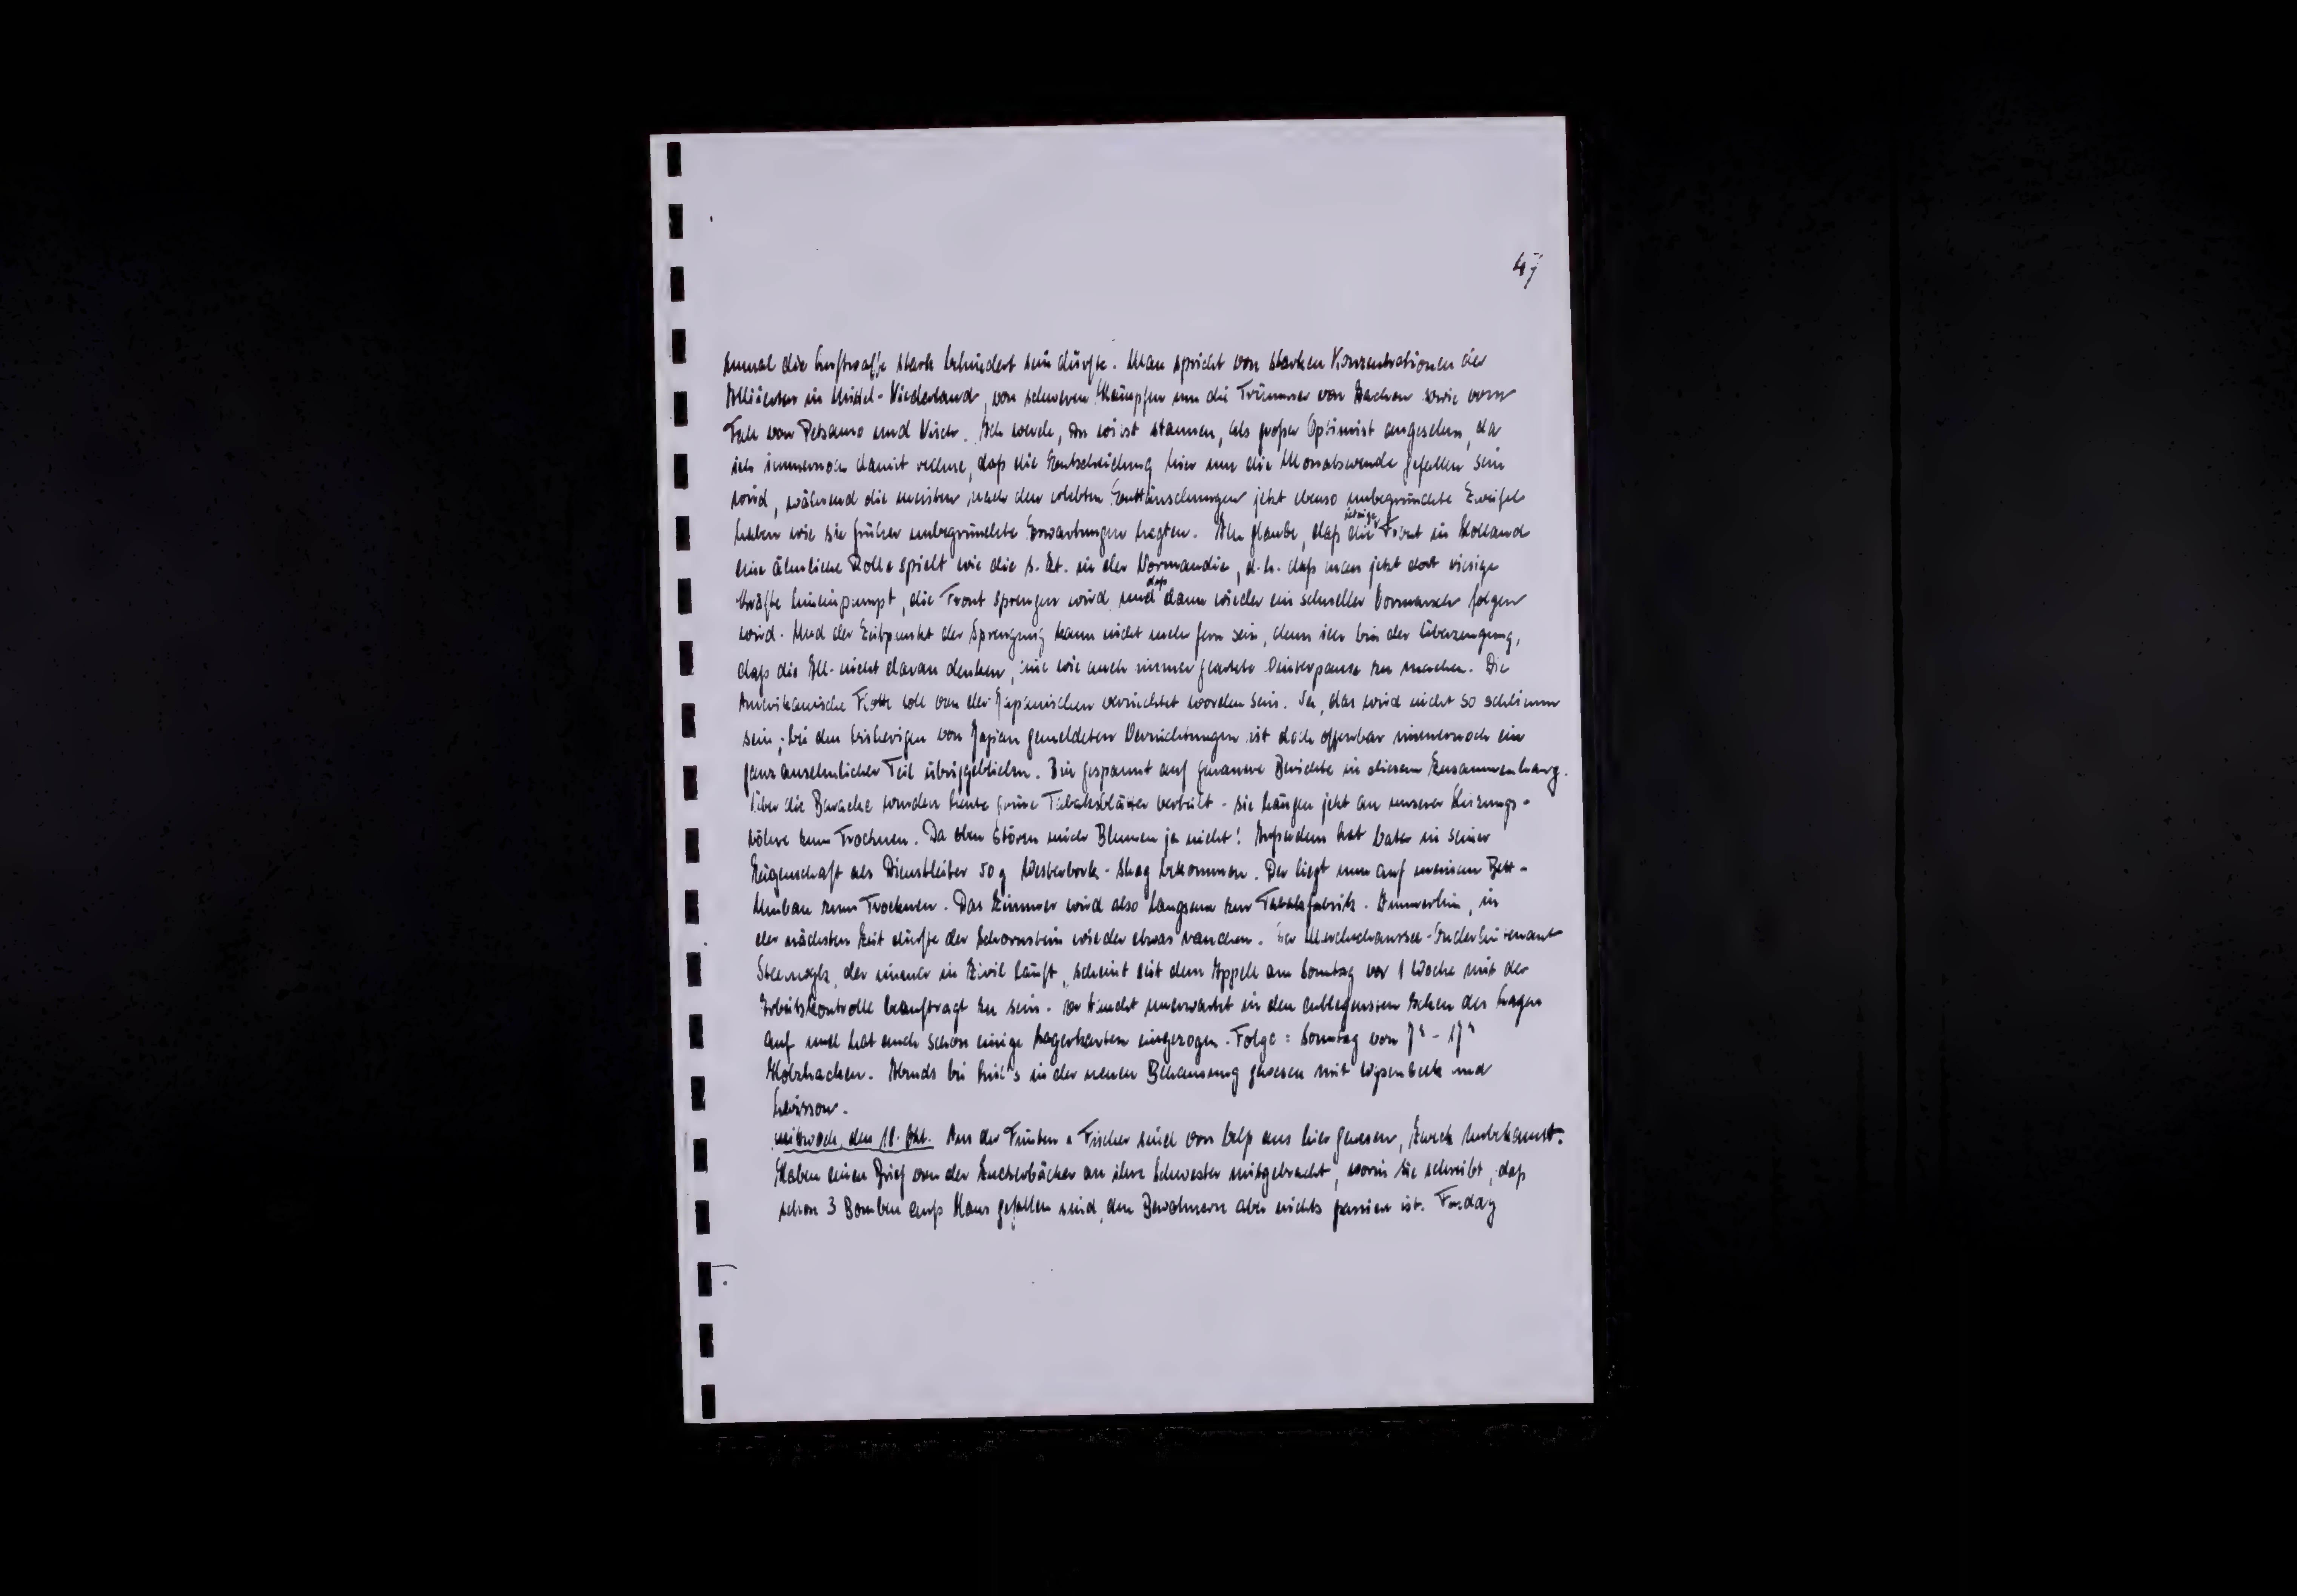 47
zumal die Luftwaffe stark behindert sein dürfte. Man spricht von starken Konzentrationen der
Alliierten in Mittel-Niederland, von schweren Kämpfen um die Trümmer von Aachen sowie vom
Fall von Petsamo und Nisch. Ich werde, Du wirst staunen, als großer Optimist angesehen, da
ich immernoch damit rechne, daß die Entscheidung hier um die Monatswende gefallen sein
wird, während die meisten nach den erlebten Enttäuschungen jetzt ebenso unbegründete Zweifel
haben wie sie früher unbegründete Erwartungen hegten. Ich glaube, daß die jetzige Front in Holland
eine ähnliche Rolle spielt wie die s. Zt. in der Normandie, d.h. daß man jetzt dort riesige
Kräfte hineinpumpt, die Front sprengen wird und daß dann wieder ein schneller Vormarsch folgen
wird. Und der Zeitpunkt der Sprengung kann nicht mehr fern sein, denn ich bin der Überzeugung,
daß die All. nicht daran denken, eine wie auch immer geartete Winterpause zu machen. Die
Amerikanische Flotte soll von der Japanischen vernichtet worden sein. Na, das wird nicht so schlimm
sein; bei den bisherigen von Japan gemeldeten Vernichtungen ist doch offenbar immernoch ein
ganz ansehnlicher Teil übriggeblieben. Bin gespannt auf genauere Berichte in diesem Zusammenhang.
Über die Baracke wurden heute grüne Tabaksblätter verteilt - sie hängen jetzt an unserer Heizungs-
röhre zum Trocknen. Da oben stören mich Blumen ja nicht! Außerdem hat Vater in seiner
Eigenschaft als Dienstleiter 50 g Westerbork-Shag bekommen. Der liegt nun auf meinem Bett-
Umbau zum Trocknen. Das Zimmer wird also langsam zur Tabaksfabrik. Immerhin, in
der nächsten Zeit dürfte der Schornstein wieder etwas rauchen. Der
der immer in Zivil läuft, scheint seit dem Appell am Sonntag vor 1 Woche mit der
Arbeitskontrolle beauftragt zu sein. Er taucht unerwartet in den entlegensten Ecken des Lagers
auf und hat auch schon einige Lagerkarten eingezogen. Folge: Sonntag von 7ʰ - 17ʰ
Holzhacken. Abends bei in der neuen Behausung gewesen mit und
Mittwoch, den 18. Okt. Aus der Fünten u Fischer sind von aus hier gewesen, Zweck unbekannt.
Haben einen Brief von der an ihre Schwester mitgebracht, worin sie schreibt, daß
schon 3 Bomben aufs Haus gefallen sind, den Bewohnern aber nichts passiert ist.